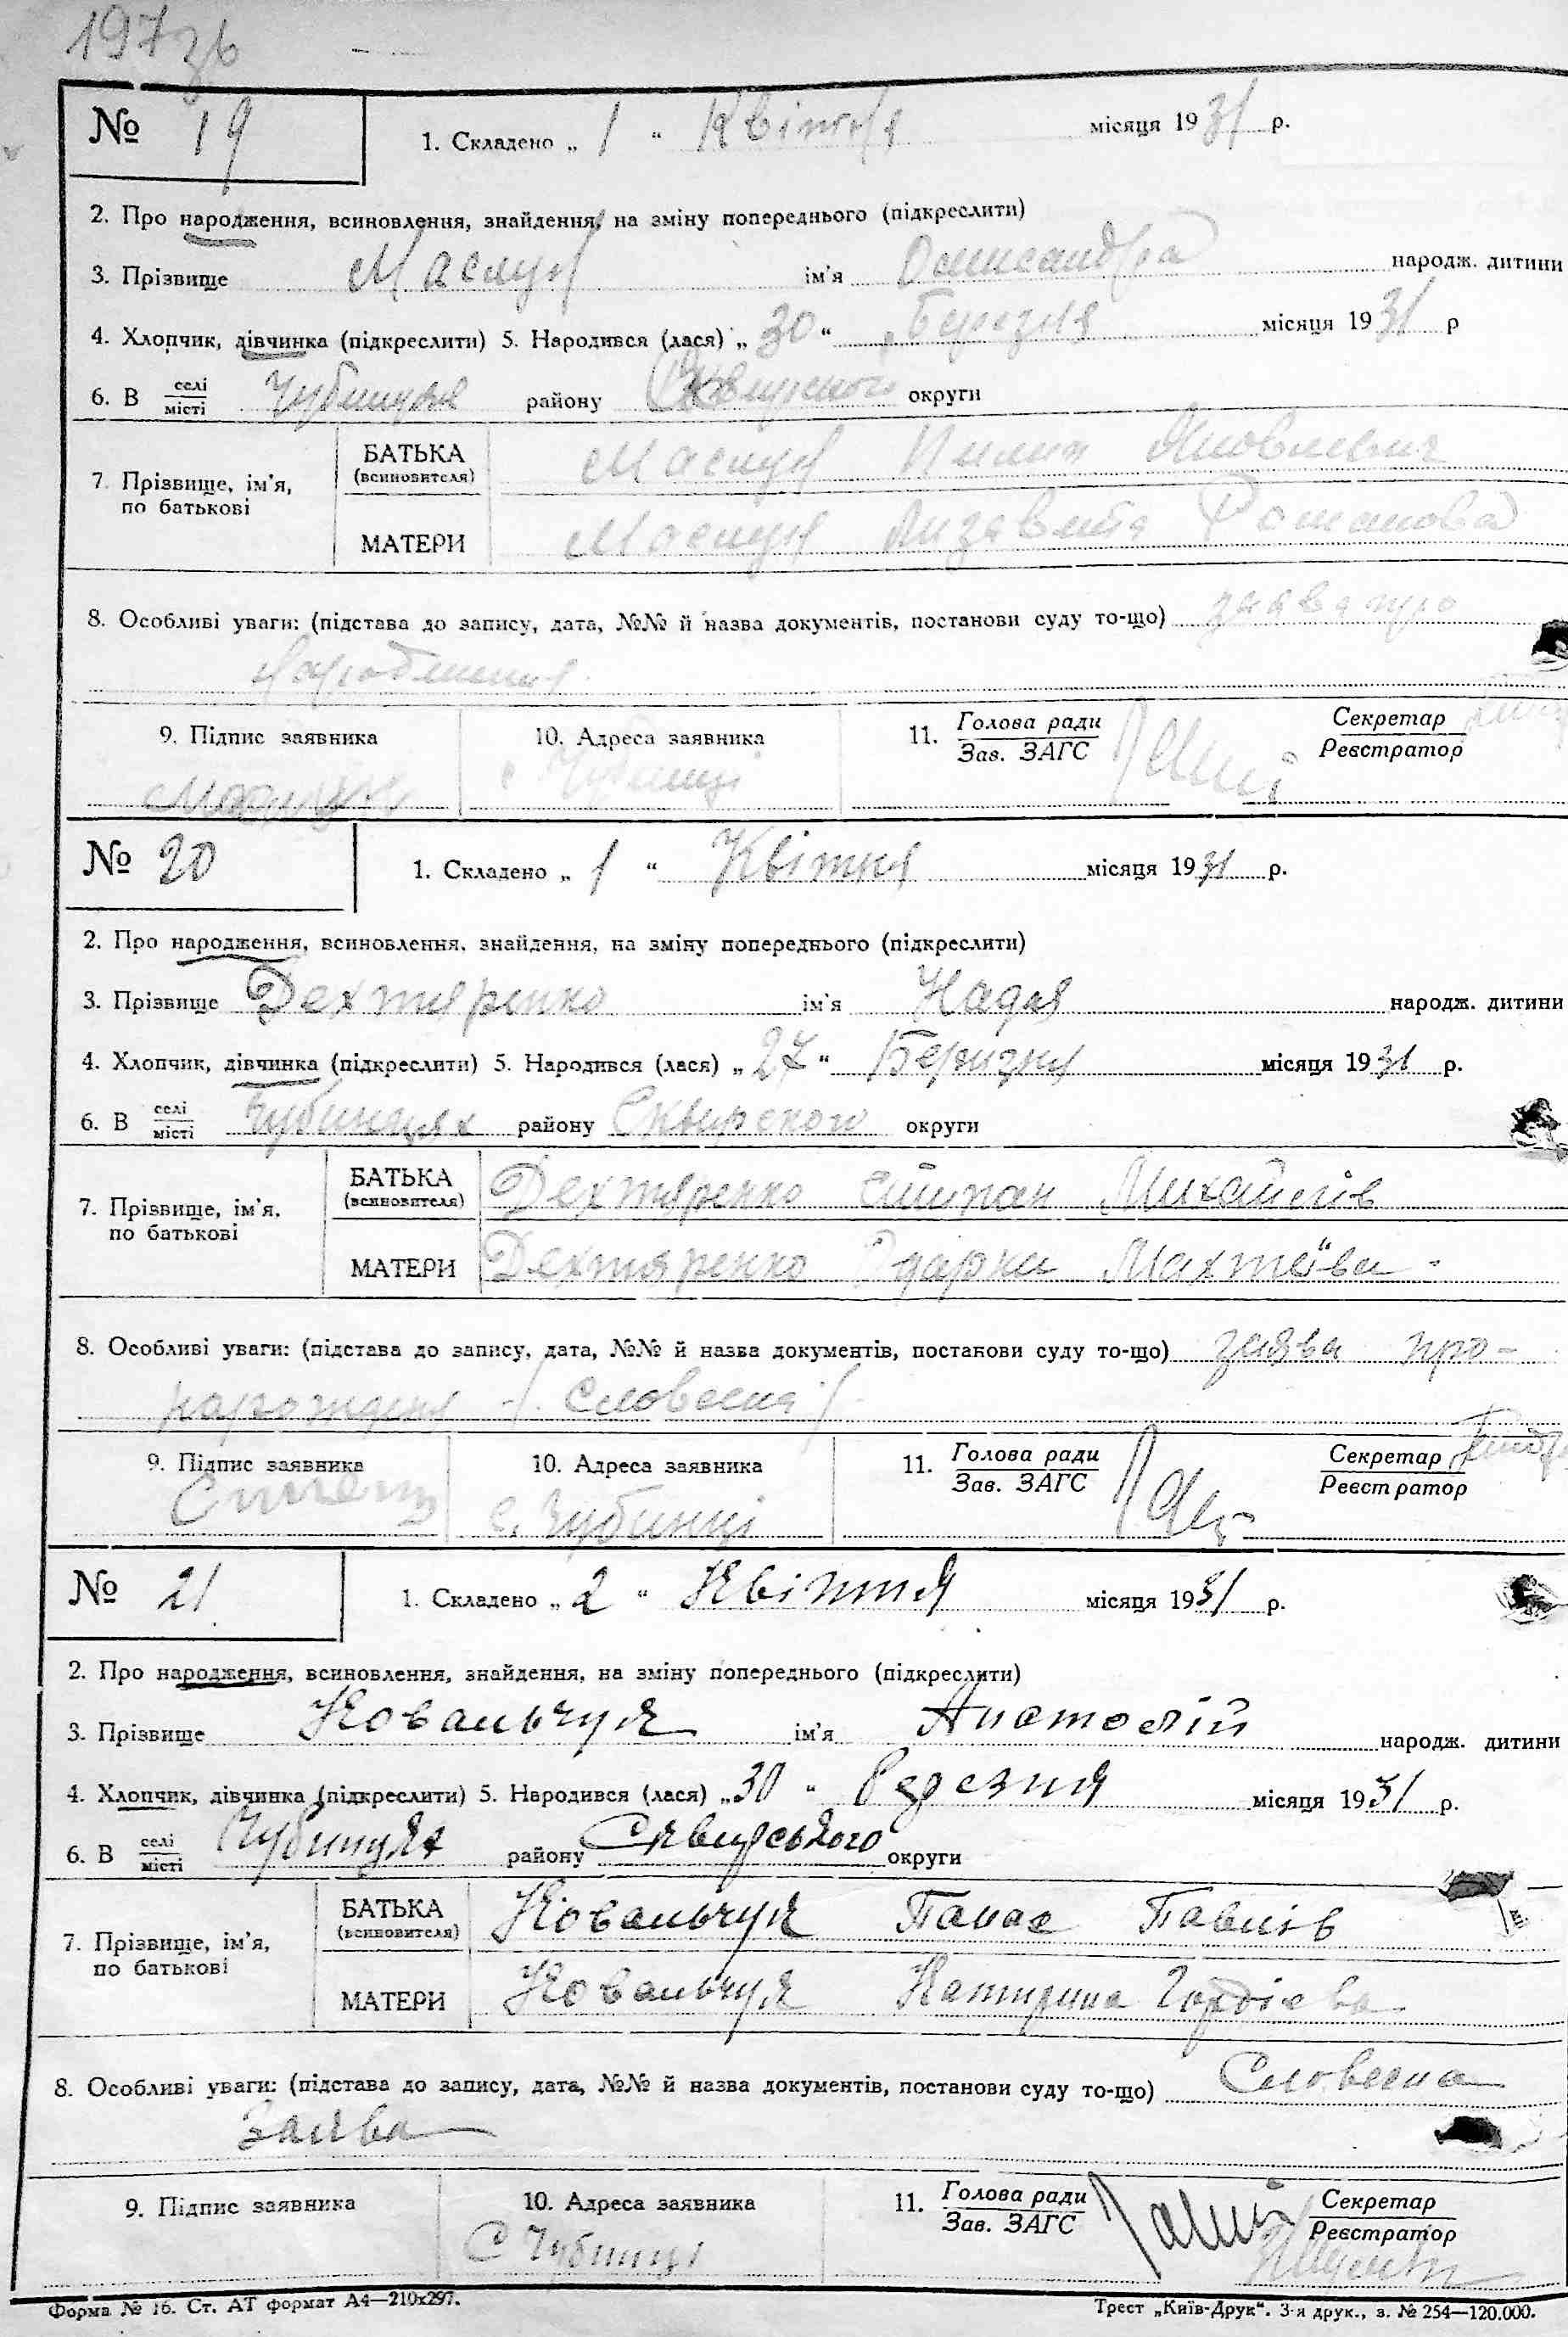 197зв
№ 19 1. Складено „ 1 “ Квітня місяця 1931 р.
2. Про народження, всиновлення, знайдення, на зміну попереднього (підкреслити)
3. Прізвище Маслун ім'я Олександра народж. дитини
4. Хлопчик, дівчинка (підкреслити) 5. Народився (лася) „ 30 “ Березня місяця 1931 р
6. В селі/місті Чубинцях району Сквирского округи
7. Прізвище, ім'я, по батькові
БАТЬКА (всиновителя) Маслун Пилип Яковлевич
МАТЕРИ Маслун Лизавета Романова
8. Особливі уваги: (підстава до запису, дата, №№ й назва документів, постанови суду то-що) заява про
народження
9. Підпис заявника 10. Адреса заявника 11. Голова ради Зав. ЗАГС Секретар Реєстратор
Маслун с Чубинці
№ 20 1. Складено „ 1 “ Квітня місяця 1931 р.
2. Про народження, всиновлення, знайдення, на зміну попереднього (підкреслити)
3. Прізвище Дехтяренко ім'я Надя народж. дитини
4. Хлопчик, дівчинка (підкреслити) 5. Народився (лася) „ 27 “ Березня місяця 1931 р.
6. В селі/місті Чубинцях району Сквирского округи
7. Прізвище, ім'я, по батькові
БАТЬКА (всиновителя) Дехтяренко Степан Михайлів
МАТЕРИ Дехтяренко Одарка Махтеїва
8. Особливі уваги: (підстава до запису, дата, №№ й назва документів, постанови суду то-що) заява про-
народженя /Словесна/
9. Підпис заявника 10. Адреса заявника 11. Голова ради Зав. ЗАГС Секретар Реєстратор
с. Чубинці
№ 21 1. Складено „ 2 “ Квітня місяця 1931 р.
2. Про народження, всиновлення, знайдення, на зміну попереднього (підкреслити)
3. Прізвище Ковальчук ім'я Анатолій народж. дитини
4. Хлопчик, дівчинка (підкреслити) 5. Народився (лася) „ 30 “ березня місяця 1931 р.
6. В селі/місті Чубинцях району Сквирського округи
7. Прізвище, ім'я, по батькові
БАТЬКА (всиновителя) Ковальчук Панас Павлів
МАТЕРИ Ковальчук Катирина Гордієва
8. Особливі уваги: (підстава до запису, дата, №№ й назва документів, постанови суду то-що) Словесна
Заява
9. Підпис заявника 10. Адреса заявника 11. Голова ради Зав. ЗАГС Секретар Реєстратор
С Чубинці
Форма № 16. Ст. АТ формат А4—210х297. Трест „Київ-Друк“. 3-я друк., з. № 254—120.000.